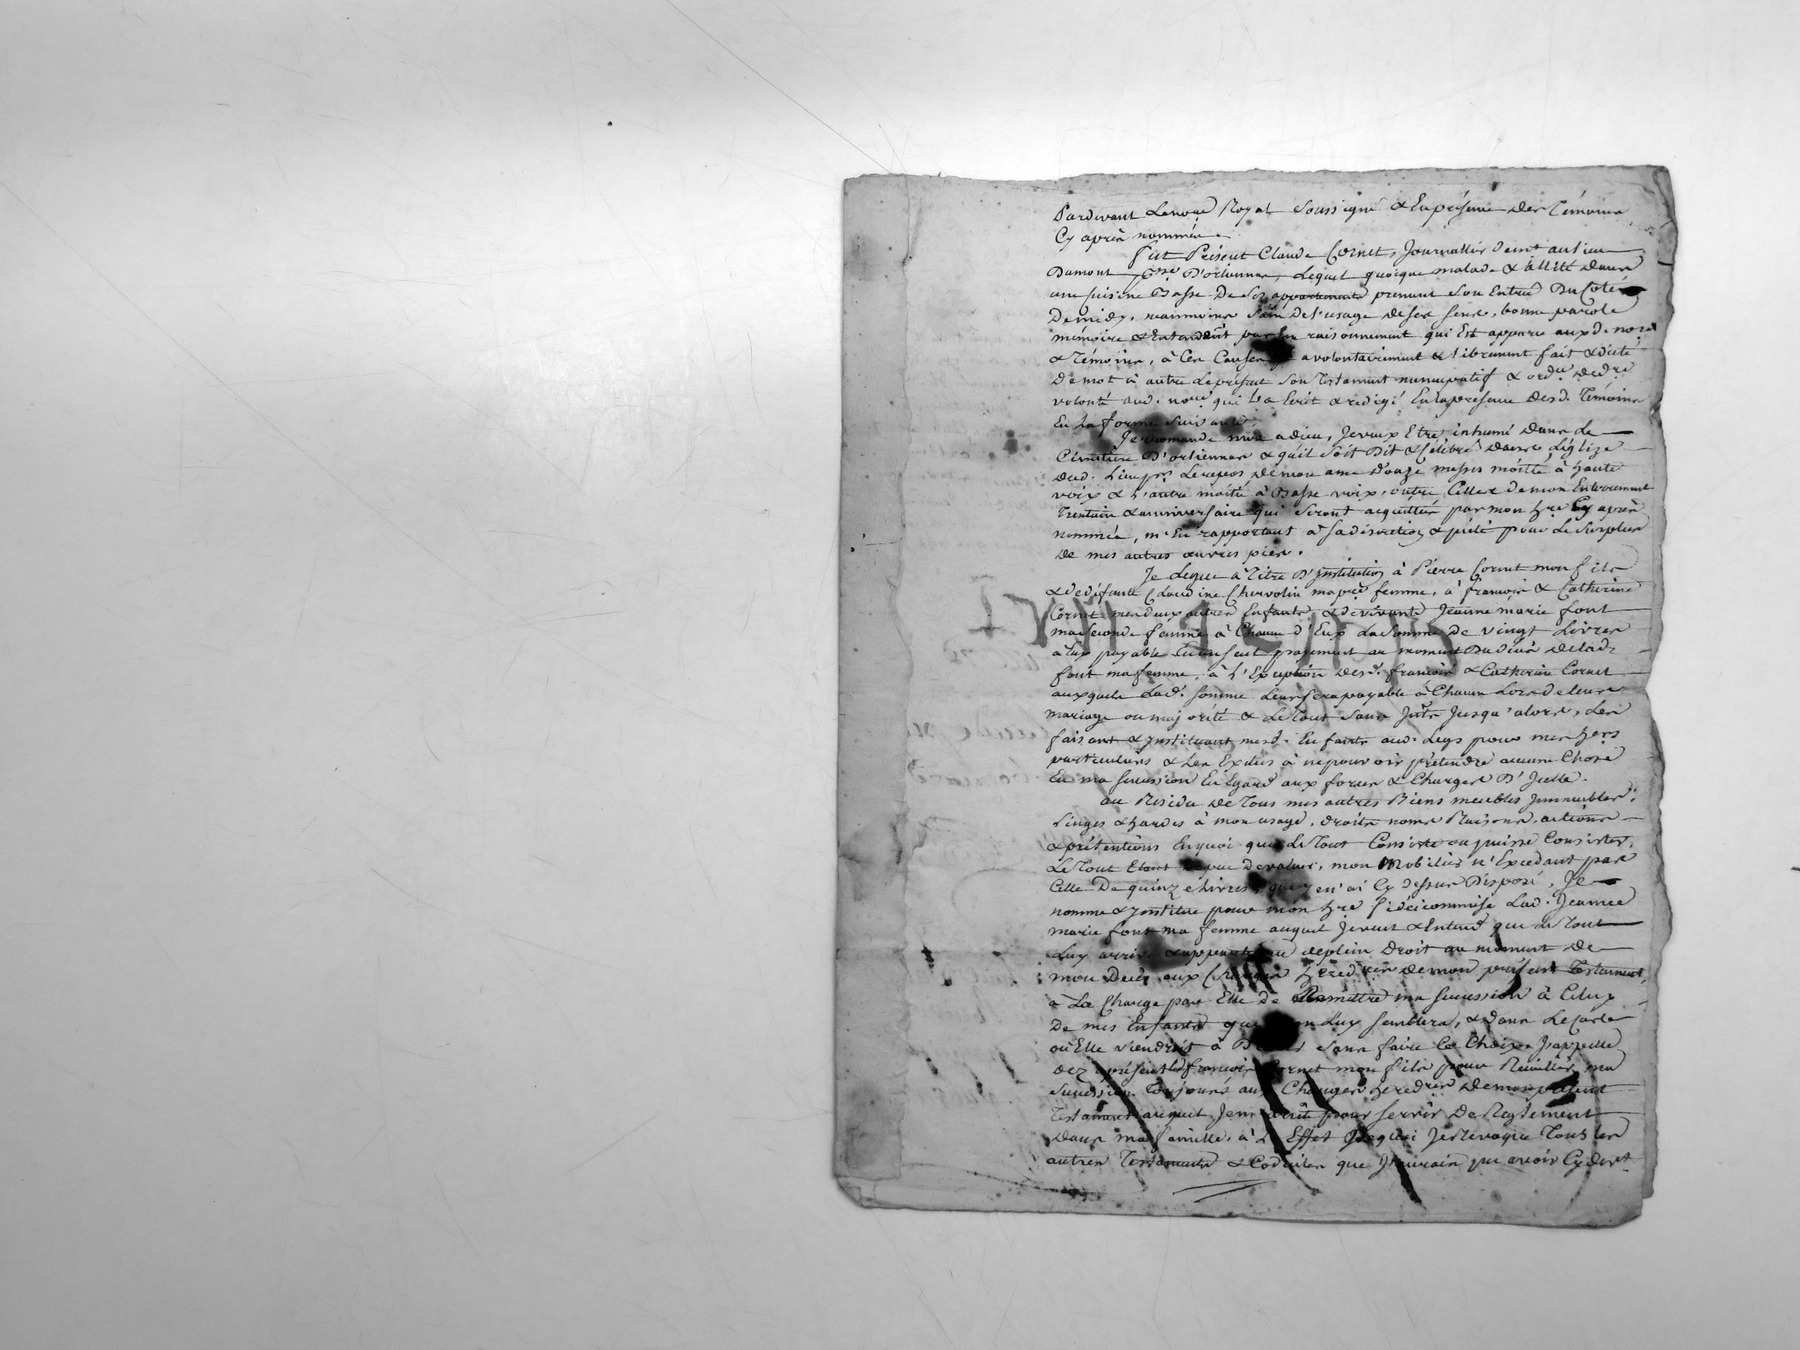 Pardevant Le nore Royal Soussigné & En présence des Témoins
Cy après nommés.
fut Présent Claude Cornet, Journallier demt au lieu
Dumont psse D'orliennas, Lequel quoique malade & allité dans
une Cuisine Basse De Ses appartements prenant Son Entrée Du Coté
De midy, neanmoins Sain De l'usage de ses sens, bonne parole
mémoire & Entendent par Son raisonnement qui Est apparu auxd. nore
& Témoins, à Ces Causes a volontairement & librement fait & dicté
De mot à autre Le présent Son Testament nuncupatif & ordre de dre
volonté aud. nore qui l'a Ecrit & redigé En la présence desd. Témoins
En la forme Suivante.
Je recomande mon ame a dieu, Je veux Etre inhumé dans Le
Cimetière D'orliennas & qu'il Soit Dit & Célébré dans L'églize
dud. Lieu pr Le repos de mon ame douze messes moitié à haute
voix & L'autre moitié à Basse voix, outre Celles de mon Enterrement
Trentain & anniversaire qui Seront acquittés par mon hre Cy après
nommée, m'En rapportant à Sa discretion & pieté pour Le Surplus
De mes autres œuvres pies.
Je Legue à Titre D'institution à Pierre Cornet mon fils
& de défunte Claudine Chervolin ma pre femme, à francois & Catherine
Cornet mes deux autres Enfants & de vivante Jeanne marie font
ma Seconde femme à Chacun d'Eux La Somme De vingt Livres
à Eux payable En un Seul payement au moment Du décès de lad.
font ma femme, à l'Exception desd. francois & Catherine Cornet
auxquels Lad. Somme Leur Sera payable à Chacun Lors de leurs
mariage ou majorité & Le Tout Sans Jnts Jusqu'alors, Les
faisant & Jnstituant mesd. Enfants aud. Legs pour mes hers
particuliers & Les Exclus à ne pouvoir prétendre aucune Chose
En ma Succession En Egard aux forces & Charges D'Jcelle.
au Residu De Tous mes autres Biens meubles Jmmeubles,
Linges & hardes à mon usage, droits noms Raisons, actions
& prétentions En quoi que Le Tout Consiste ou puisse Consister,
Le Tout Etant de peu De valeur, mon Mobilier n'Excedant pas
Celle De quinze Livres, que Je n'ai Cy dessus Disposé, Je
nomme & Jnstitue pour mon hre fideicommise Lad. Jeanne
marie font ma femme auquel Je veux & Entend que Le Tout
Luy arrive & appartienne de plein Droit au moment De
mon Décès, aux Charges heredres de mon présent Testament,
à La Charge par Elle De Remettre ma Succession à Celuy
De mes Enfants que bon Luy Semblera, & dans Le Cas
où Elle viendroit à Décéder Sans faire Ce Choix, J'appelle
dez à présent led. francois Cornet mon fils pour Reueillir ma
Succession Toujours aux Charges heredres de mon présent
Testament auquel Je m'arrête pour Servir De Reglement
dans ma famille, à L'Effet De quoi Je Revoque Tous les
autres Testaments & Codiciles que J'aurais pu avoir Cy devt